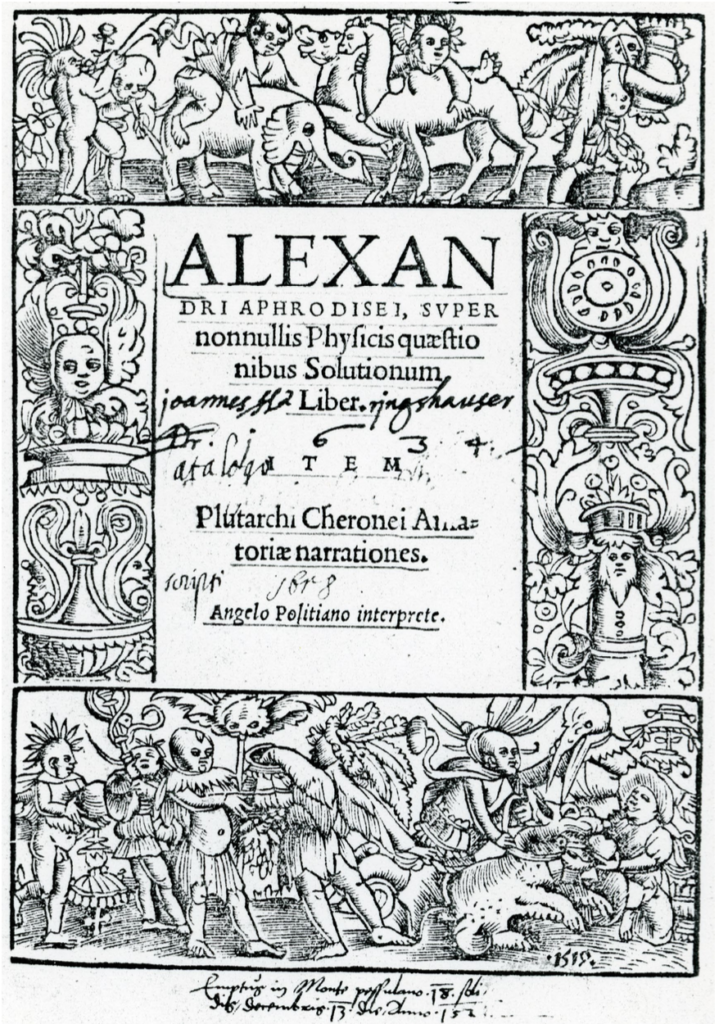 ALEXAN
DRI APHRODISEI, SVPER
nonnullis Phyſicis quæſtio
nibus Solutionum
joannes Liber. ringshauser
6 3 4
ITEM
Plutarchi Cheronei
toriæ narrationes.
scripsi 1658
Angelo Politiano interprete.
.1519.
Emptus in Monte pessulano .18. soli
dis, decembris .13. die. Anno 152